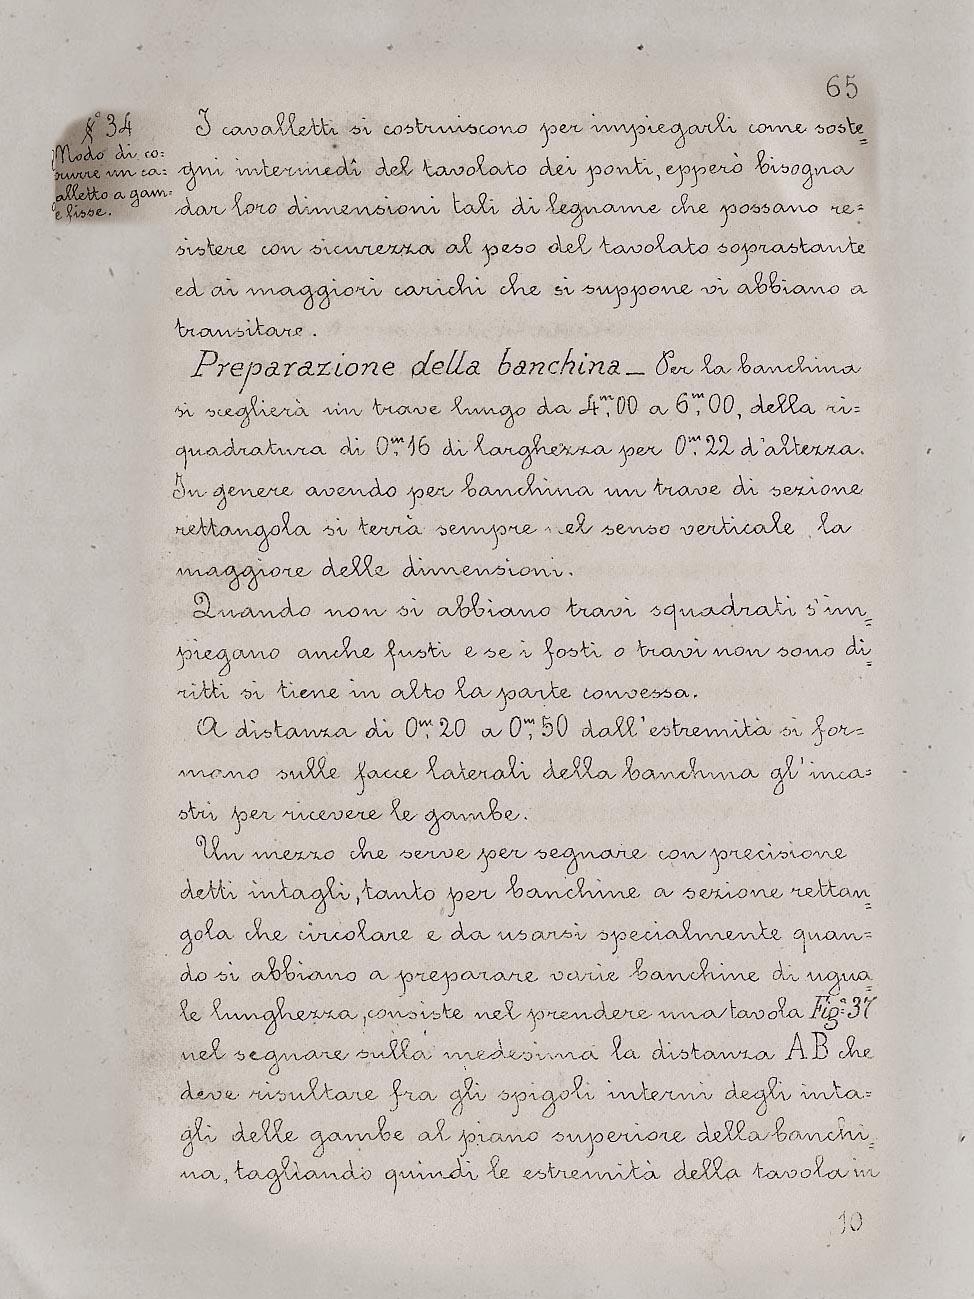 65
§° 34
Modo di co=
rurre un ca=
alletto a gam=
e fisse.
I cavalletti si costruiscono per impiegarli come soste=
gni intermedî del tavolato dei ponti, epperò bisogna
dar loro dimensioni tali di legname che possano re=
sistere con sicurezza al peso del tavolato soprastante
ed ai maggiori carichi che si suppone vi abbiano a
transitare.
Preparazione della banchina _ Per la banchina
si sceglierà un trave lungo da 4,ᵐ00 a 6,ᵐ00, della ri=
quadratura di 0,ᵐ16 di larghezza per 0,ᵐ22 d'altezza.
In genere avendo per banchina un trave di sezione
rettangola si terrà sempre nel senso verticale la
maggiore delle dimensioni.
Quando non si abbiano travi squadrati s'im=
piegano anche fusti e se i fosti o travi non sono di=
ritti si tiene in alto la parte convessa.
A distanza di 0,ᵐ20 a 0,ᵐ50 dall'estremità si for=
mano sulle facce laterali della banchina gl'inca=
stri per ricevere le gambe.
Un mezzo che serve per segnare con precisione
detti intagli, tanto per banchine a sezione rettan=
gola che circolare e da usarsi specialmente quan=
do si abbiano a preparare varie banchine di ugua=
le lunghezza, consiste nel prendere una tavola Figᵃ 37
nel segnare sulla medesima la distanza AB che
deve risultare fra gli spigoli interni degli inta=
gli delle gambe al piano superiore della banchi=
na, tagliando quindi le estremità della tavola in
10